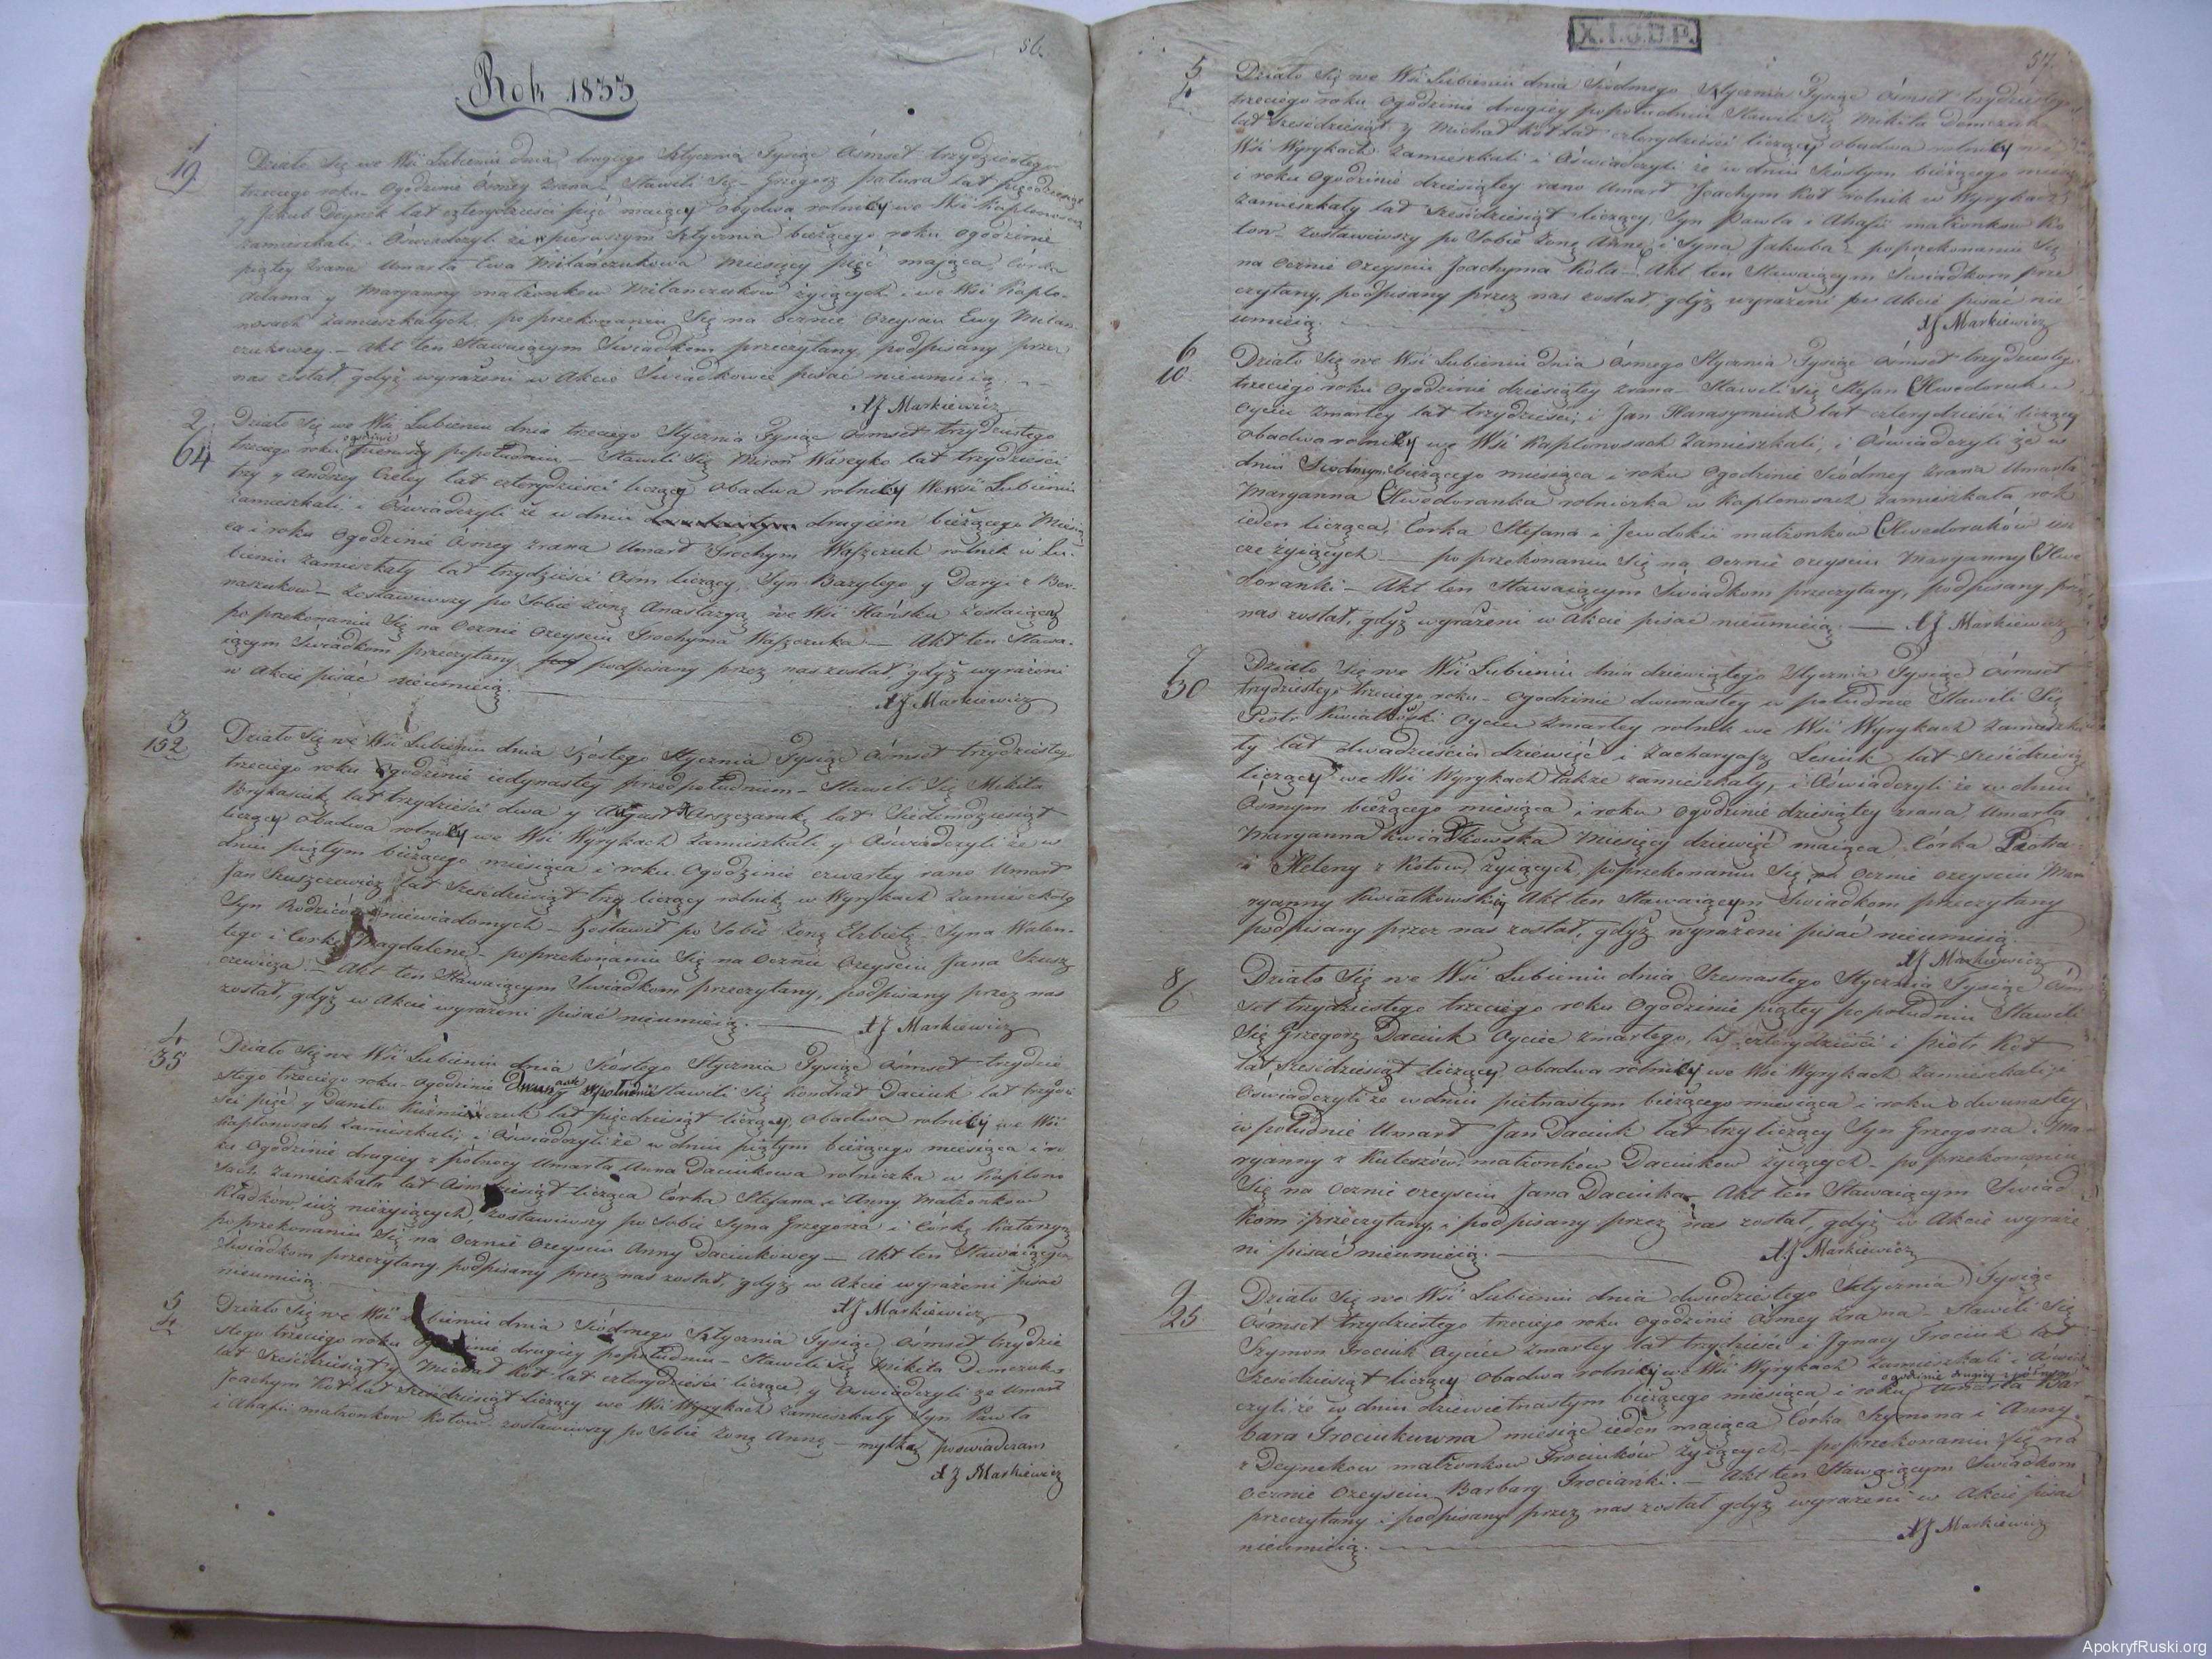 56.
Rok 1833
1
19.
Działo Się we Wsi Lubieniu dnia drugiego Stycznia Tysiąc Ośmset trzydziestego
trzeciego roku ogodzinie ósmey zrana Stawili Się Grzegorz Patura lat pięćdziesiąt
y Jakub Deynek lat czterydzieści pięć maiący obydwa rolnicy we Wsi Kaplonosach
zamieszkali, i Oświadczyli że w pierwszym Stycznia bieżącego roku ogodzinie
piątey zrana Umarła Ewa Milańczukowa Miesięcy pięć mająca, Córka
Adama y Maryanny małżonków Milanczuków żyiących we Wsi Kaplo-
nosach zamieszkałych, po przekonaniu Się na ocznie Ozeyściu Ewy Milan-
czukowey. — Akt ten Stawaiącym Świadkom przeczytany, podpisany przez
nas został, gdyż wyrażeni w Akcie Świadkowie pisać nieumieią.
XJ Markiewicz
2
64
Działo Się we Wsi Lubieniu dnia trzeciego Stycznia Tysiąc Ośmset trzydziestego
ogodzinie
trzeciego roku pierwszy popołudniu — Stawili Się Miron Wareyko lat trzydzieści
trzy y Andrzey Czeley lat czterydzieści liczący obadwa rolnicy We Wsi Lubieniu
zamieszkali, i Oświadczyli że w dniu drugiem bieżącego Miesią
ca i roku Ogodzinie Osmey zrana Umarł Trochym Waszczuk rolnik w Lu-
bieniu zamieszkały lat trzydzieści Ośm liczący, Syn Bazylego y Daryi z Ber-
naszuków — Zostawiwszy po Sobie żonę Anastazyą we Wsi Hańsku zostaiącą
po przekonaniu Się na Ocznie Ozeyściu Trochyma Waszczuka — Akt ten Stawa-
iącym Świadkom przeczytany, podpisany przez nas został, gdyż wyrażeni
w Akcie pisać nieumieią.
XJ Markiewicz
3
152
Działo Się we Wsi Lubieniu dnia Szóstego Stycznia Tysiąc Ośmset trzydziestego
trzeciego roku Ogodzinie iedynastey przedpołudniem — Stawili Się Mikita
Brykasiuk lat trzydzieści dwa y August Arszczaruk lat Siedemdziesiąt
liczący obadwa rolnicy we Wsi Wyrykach zamieszkali y Oświadczyli że w
dniu piątym bieżącego miesiąca i roku Ogodzinie czwartey rano Umarł
Jan Szuszczewicz lat Sześćdziesiąt trzy liczący rolnik w Wyrykach zamieszkały
Syn Rodziców niewiadomych — Zostawił po Sobie żonę Elżbietę, Syna Walen-
tego i Corkę Magdalenę — poprzekonaniu Się na Ocznie Ozeyściu Jana Szusz
czewicza. — Akt ten Stawaiącym Świadkom przeczytany, podpisany przez nas
został, gdyż w Akcie wyrażeni pisać nieumieią. —
XJ Markiewicz
4
35
Działo Się we Wsi Lubieniu dnia Szóstego Stycznia Tysiąc Ośmset trzydzie
stego trzeciego roku Ogodzinie Dwunastey wpołudnie Stawili Się Kondrat Daciuk lat trzydzie
ści pięć y Daniło Kuźmiczuk lat pięćdziesiąt liczący, obadwa rolnicy we Wsi
Kaplonosach zamieszkali, i Oświadczyli że w dniu piątym bieżącego miesiąca i ro
ku Ogodzinie drugiey z północy Umarła Anna Daciukowa rolniczka w Kaplono
sach zamieszkała lat Ośmdziesiąt licząca Córka Stefana i Anny Małżonków
Kładków, już nieżyiących, Zostawiwszy po Sobie Syna Grzegorza i Córkę Katarzynę
po przekonaniu Się na Ocznie Ozeyściu Anny Daciukowey — Akt ten Stawaiącym
Świadkom przeczytany, podpisany przez nas został, gdyż w Akcie wyrażeni pisać
nieumieią.
XJ Markiewicz
5
4
Działo Się we Wsi Lubieniu dnia Siódmego Stycznia Tysiąc Ośmset trzydzie
stego trzeciego roku Ogodzinie drugiey popołudniu — Stawili Się Mikita Demczuk
lat Sześćdziesiąt y Michał Kot lat czterydzieści liczące, y Oswiadczyli że Umarł
Joachym Kot lat sześćdziesiąt liczący we Wsi Wyrykach zamieszkały Syn Pawła
i Ahafii małżonków Kotów, zostawiwszy po Sobie żonę Annę — myłkę poświadczam
XJ Markiewicz
X.I.U.D.P.
57.
5
4
Działo Się we Wsi Lubieniu dnia Siódmego Stycznia Tysiąc Ośmset trzydziestego
trzeciego roku Ogodzinie drugiey popołudniu Stawili Się Mikita Demczuk
lat Sześćdziesiąt y Michał Kot lat czterydzieści liczący obadwa rolnicy we
Wsi Wyrykach zamieszkali i Oświadczyli że w dniu Szóstym bieżącego miesiąca
i roku Ogodzinie dziesiątey rano Umarł Joachym Kot rolnik w Wyrykach
zamieszkały lat Sześćdziesiąt liczący, Syn Pawła i Ahafii małżonków Ko
tów — Zostawiwszy po Sobie żonę Annę i Syna Jakuba — poprzekonaniu Się
na Ocznie Ozeyściu Joachyma Kota — Akt ten Stawaiącym Świadkom prze
czytany, podpisany przez nas został, gdyż wyrażeni w Akcie pisać nie
umieią.
XJ Markiewicz
6
10
Działo Się we Wsi Lubieniu dnia Ósmego Stycznia Tysiąc Ośmset trzydziestego
trzeciego roku Ogodzinie dziesiątey zrana Stawili Się Stefan Chwedoruk
Oyciec zmarłey lat trzydzieści, i Jan Harasymiuk lat czterydzieści liczący
Obadwa rolnicy we Wsi Kaplonosach zamieszkali, i Oświadczyli że w
dniu Siodmym bieżącego miesiąca i roku Ogodzinie Siódmey zrana Umarła
Maryanna Chwedoranka rolniczka w Kaplonosach zamieszkała rok
ieden licząca, Córka Stefana i Jewdokii małżonków Chwedoruków iesz
cze żyiących — po przekonaniu Się na Ocznie Ozeyściu Maryanny Chwe
doranki — Akt ten Stawaiącym Świadkom przeczytany, podpisany przez
nas został, gdyż wyrażeni w Akcie pisać nieumieią. — XJ Markiewicz
7
30
Działo Się we Wsi Lubieniu dnia dziewiątego Stycznia Tysiąc Ośmset
trzydziestego trzeciego roku — Ogodzinie dwunastey w południe Stawili Się
Piotr Kwiatkowski Oyciec zmarłey rolnik we Wsi Wyrykach zamieszka
ły lat dwadzieścia dziewięć i Zacharyasz Lesiuk lat sześćdziesiąt
liczący we Wsi Wyrykach także zamieszkały, i Oświadczyli że w dniu
Ósmym bieżącego miesiąca i roku Ogodzinie dziesiątey zrana Umarła
Maryanna Kwiatkowska Miesięcy dziewięć maiąca, Córka Piotra
i Heleny z Kotów, żyiących, poprzekonaniu Się na Ocznie Ozeyściu Ma
ryanny Kwiatkowskiy Akt ten Stawaiącym Świadkom przeczytany
podpisany przez nas został, gdyż wyrażeni pisać nieumieią.
XJ Markiewicz
8
6
Działo Się we Wsi Lubieniu dnia Szesnastego Stycznia Tysiąc Ośm
set trzydziestego trzeciego roku Ogodzinie piątey popołudniu Stawili
Się Grzegorz Daciuk Oyciec zmarłego, lat czterydzieści i Piotr Kot
lat Sześćdziesiąt liczący, obadwa rolnicy we Wsi Wyrykach zamieszkali, i
Oświadczyli że w dniu piętnastym bieżącego miesiąca i roku o dwunastey
w południe Umarł Jan Daciuk lat trzy liczący Syn Grzegorza i Ma
ryanny z Kuleszów, małżonków Daciuków żyiących — po przekonaniu
Się na Ocznie Ozeyściu Jana Daciuka — Akt ten Stawaiącym Świad
kom przeczytany, i podpisany przez nas został, gdyż w Akcie wyraże
ni pisać nieumieią. —
XJ Markiewicz
9
25
Działo Się we Wsi Lubieniu dnia dwudziestego Stycznia Tysiąc
Ośmset trzydziestego trzeciego roku Ogodzinie Ósmey Zrana — Stawili Się
Szymon Trociuk Oyciec zmarłey lat trzydzieści i Ignacy Trociuk lat
Sześćdziesiąt liczący obadwa rolnicy we Wsi Wyrykach zamieszkali i Oświad
ogodzinie drugiey z północy
czyli, że w dniu dziewietnastym bieżącego miesiąca i roku Umarła Bar
bara Trociukuwna miesiąc ieden maiąca Córka Szymona i Anny
z Deyneków małżonków Trociuków żyiących — poprzekonaniu Się na
Ocznie Ozeyściu Barbary Trocianki. — Akt ten Stawaiącym Świadkom
przeczytany i podpisany przez nas został gdyż wyrażeni w Akcie pisać
nieumieią.
XJ Markiewicz
ApokryfRuski.org